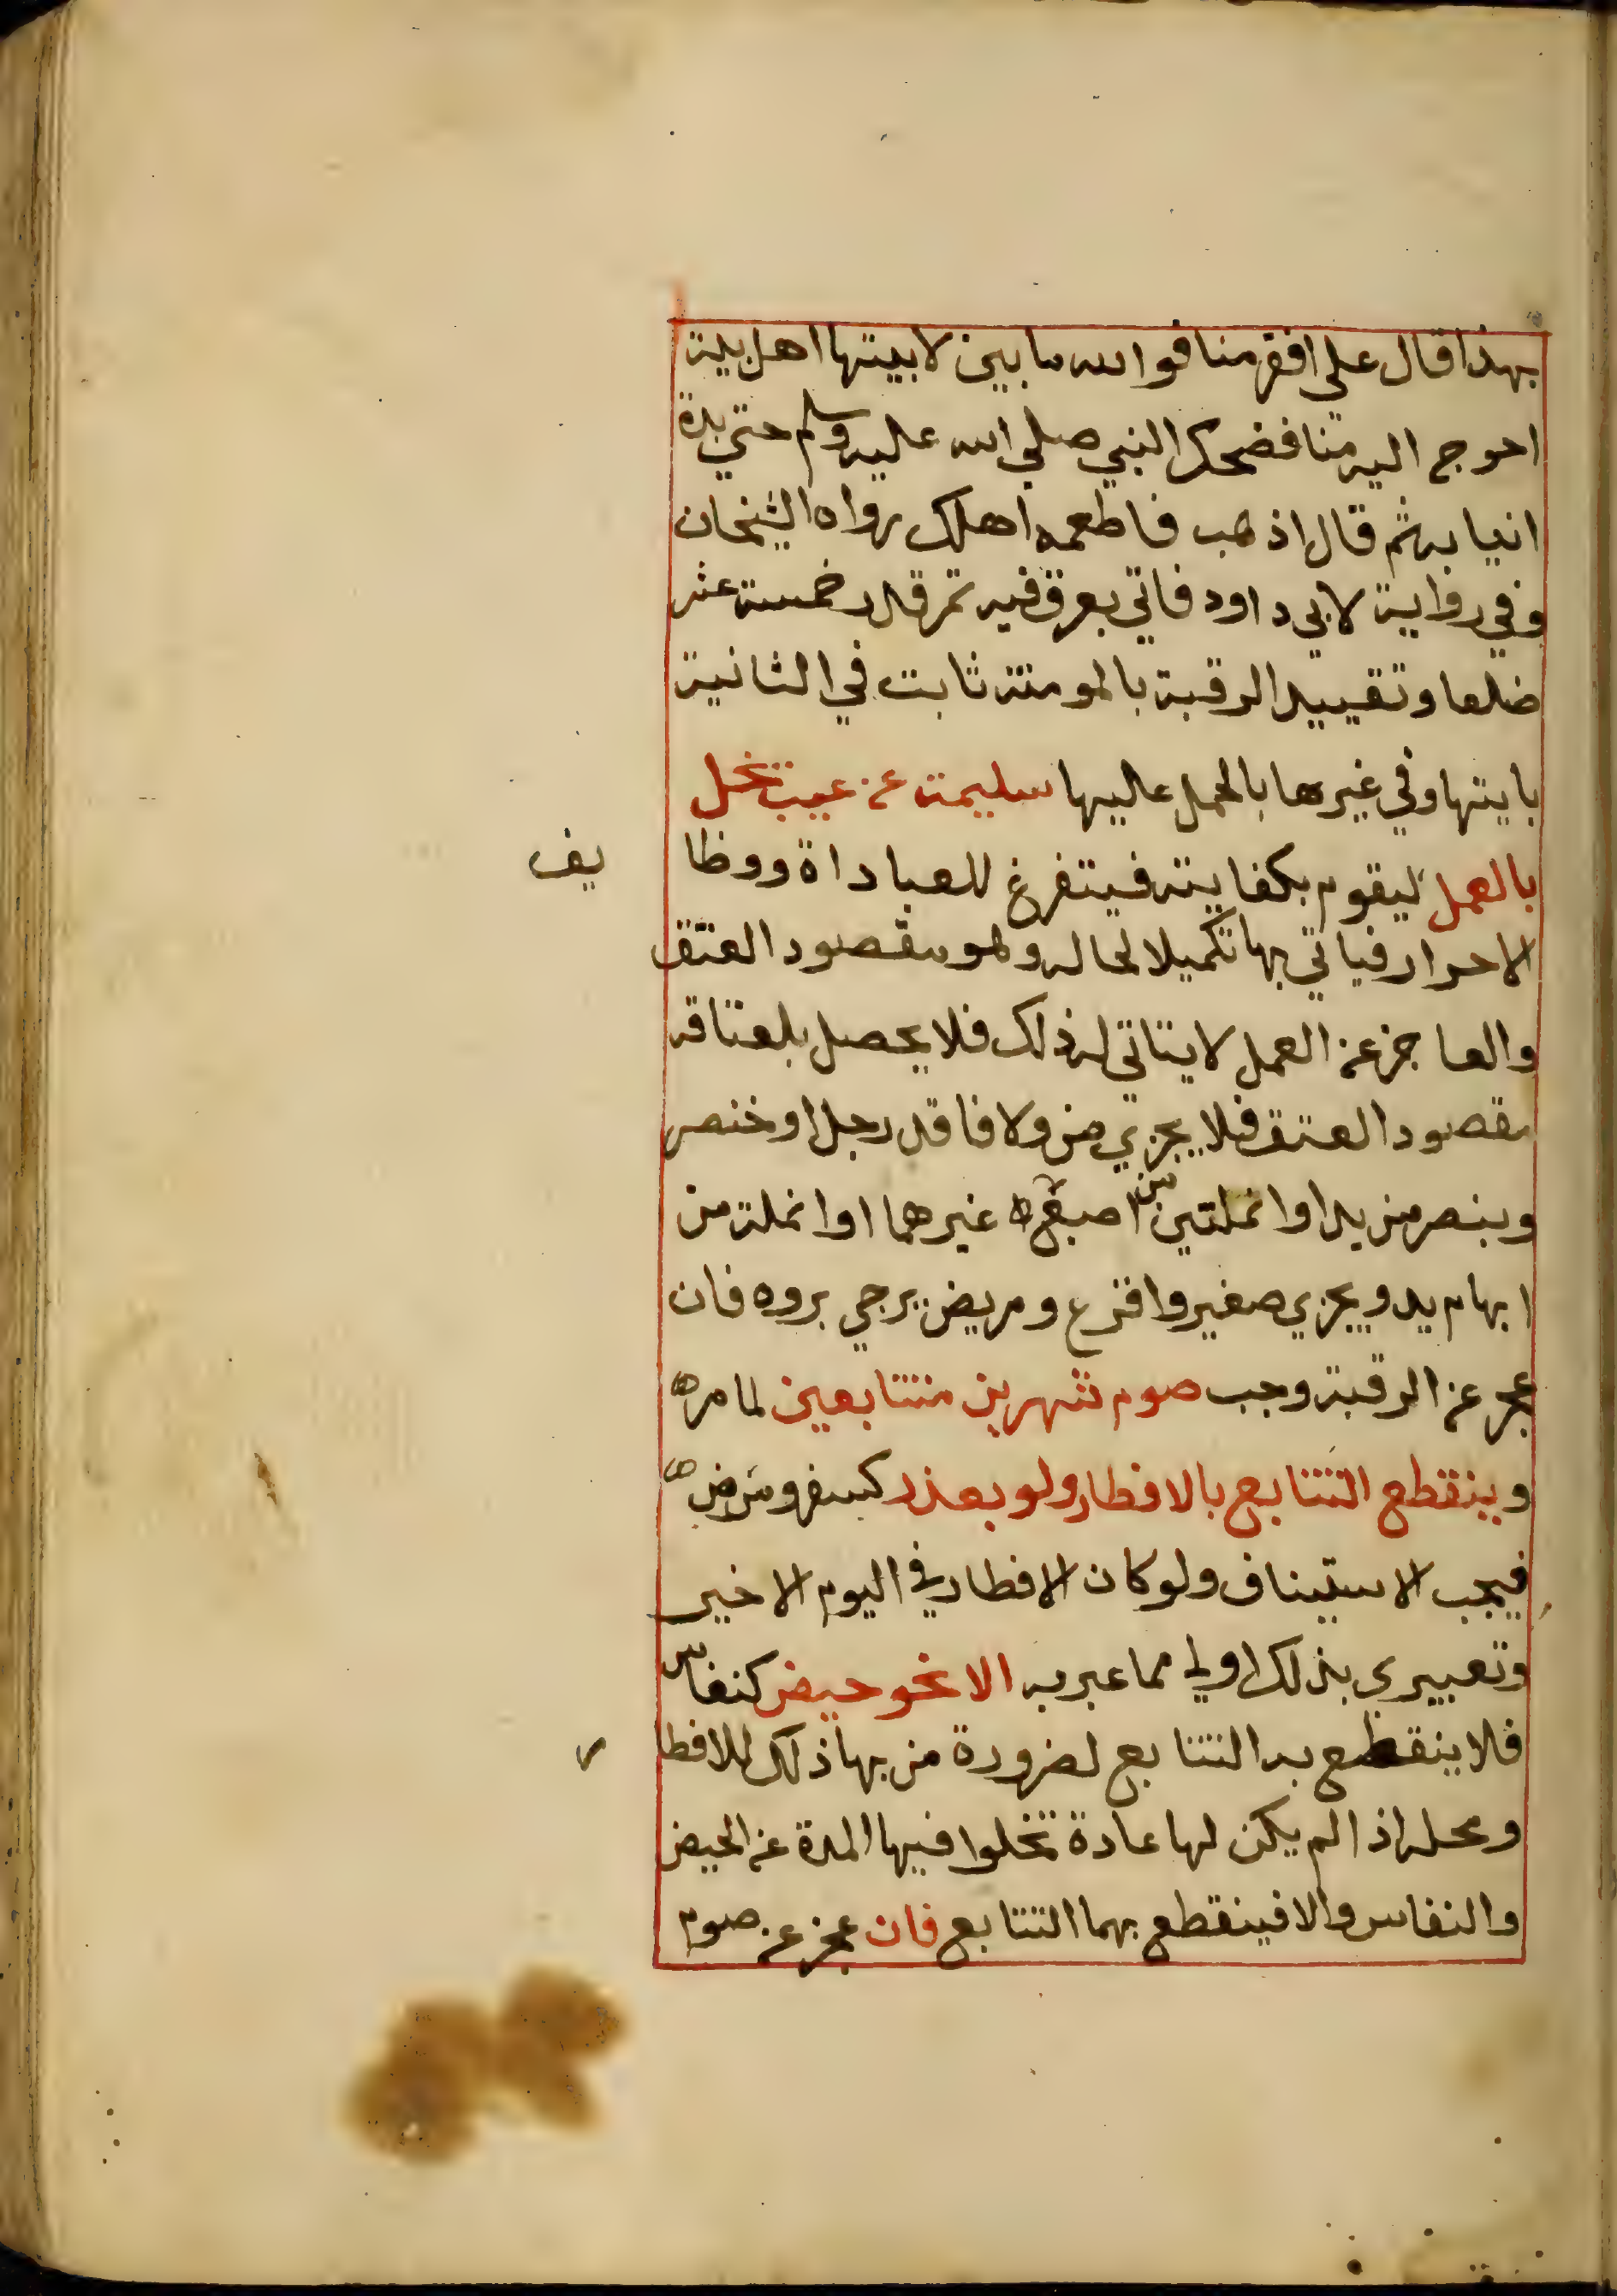 بهذا قال على افقر منا فوالله ما بين لابيتها اهل بيت
احوج اليه منا فضحك النبي صلي الله عليه وسلم حتي بدة
انيابه ثم قال اذهب فاطعمه اهلك رواه الشيخان
وفي رواية لابي داود فاتي بعرق فيه تمر قدر خمسة عشر
ضلعا وتقييد الرقبة بالمومنة ثابت في الثانية
بايتها وفي غيرها بالحمل عاليها سليمة عن عيب تخل
بالعمل ليقوم بكفايته فيتفرغ للعباداة ووظا يف
الاحرار فياتي بها تكميلا لحاله ولهو مقصود العتق
والعاجز عن العمل لا يتاتي له ذلك فلا يحصل بلعتاقه
مقصود العتق فلا يجزي من ولا فاقد رجل او خنصر
وبنصر من يد او انملتين من اصبع غيرهما او انملة من
ابهام يد ويجزي صغير واقرع ومريض يرجي بروه فان
عجز عن الرقبة وجب صوم شهرين متتابعين لما مر ه
وينقطع التتابع بالافطار ولو بعذر كسفر ومرض ه
فيجب الاستيناف ولو كان الافطار في اليوم الاخير
وتعبيري بذلك اولي مما عبر به الا نحو حيض كنفاس
فلا ينقطع به التتابع لضرورة من بها ذلك للافطا ر
ومحله اذا لم يكن لها عادة تخلوا فيها المدة عن الحيض
والنفاس والا فينقطع بهما التتابع فان عجز عن صوم